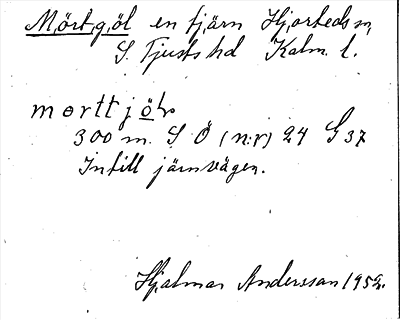 Mörtgöl en tjärn Hjorteds sn,
S. Tjusts hd Kalm. l.
morttjö̲l
300 m. S Ö (nr) 24 G 37
Intill järnvägen.
Hjalmar Andersson 195